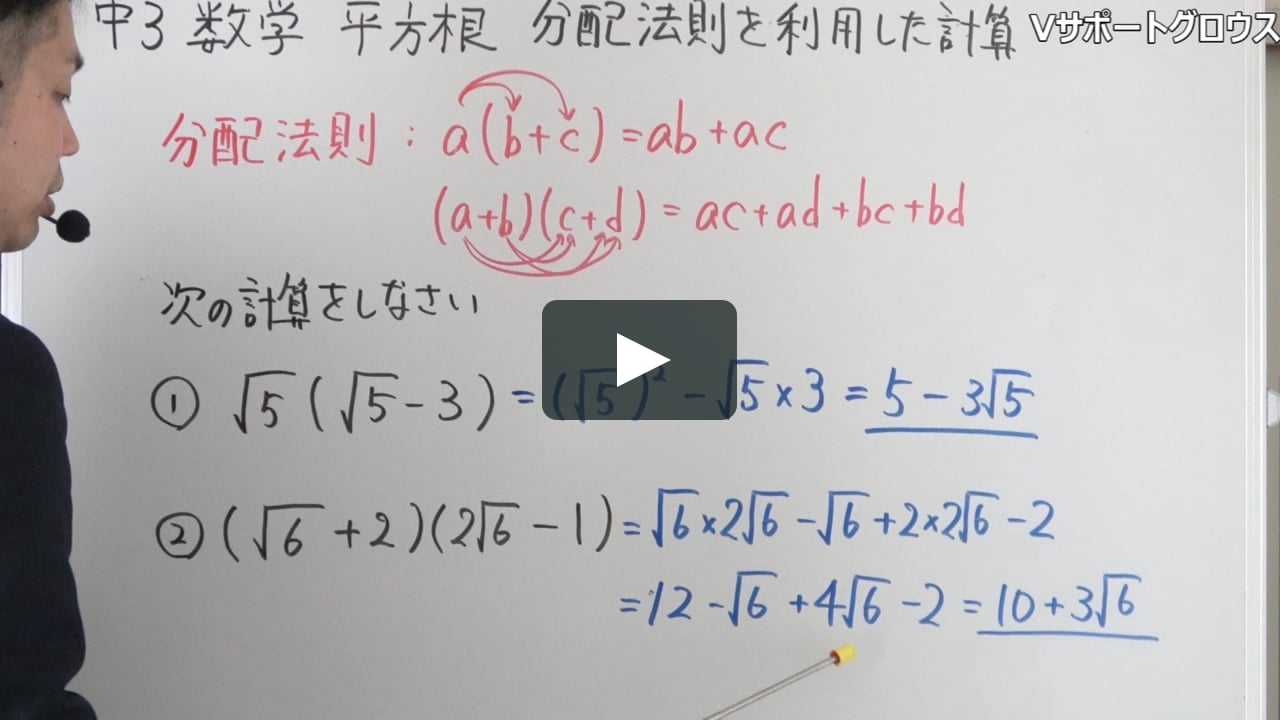 中3 数学 平方根 分配法則を利用した計算
Vサポートグロウス
分配法則 : a(b+c)=ab+ac
(a+b)(c+d)=ac+ad+bc+bd
次の計算をしなさい
① √5(√5-3)=(√5)²-√5×3=5-3√5
② (√6+2)(2√6-1)=√6×2√6-√6+2×2√6-2
=12-√6+4√6-2=10+3√6